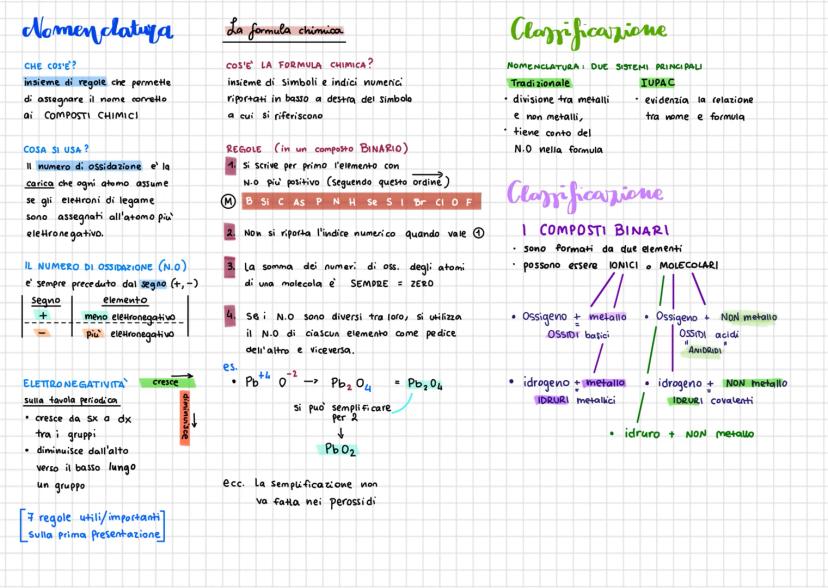 Nomenclatura
CHE COS'E'?
insieme di regole che permette
di assegnare il nome corretto
ai COMPOSTI CHIMICI
COSA SI USA?
Il numero di ossidazione e' la
carica che ogni atomo assume
se gli elettroni di legame
sono assegnati all'atomo più
elettronegativo.
IL NUMERO DI OSSIDAZIONE (N.O)
e' sempre preceduto dal segno (+,-)
segno elemento
+ meno elettronegativo
- più elettronegativo
ELETTRONEGATIVITA' cresce
sulla tavola periodica
diminuisce
• cresce da sx a dx
tra i gruppi
• diminuisce dall'alto
verso il basso lungo
un gruppo
[7 regole utili/importanti
sulla prima presentazione]
La formula chimica
COS'E' LA FORMULA CHIMICA?
insieme di simboli e indici numerici
riportati in basso a destra del simbolo
a cui si riferiscono
REGOLE (in un composto BINARIO)
1. Si scrive per primo l'elemento con
N.O più positivo (seguendo questo ordine)
M B Si C As P N H Se S I Br Cl O F
2. Non si riporta l'indice numerico quando vale 1
3. La somma dei numeri di oss. degli atomi
di una molecola è SEMPRE = ZERO
4. Se i N.O sono diversi tra loro, si utilizza
il N.O di ciascun elemento come pedice
dell'altro e viceversa.
es.
• Pb⁺⁴ O⁻² → Pb₂ O₄ = Pb₂O₄
si può semplificare
per 2
↓
PbO₂
ecc. La semplificazione non
va fatta nei perossidi
Classificazione
NOMENCLATURA: DUE SISTEMI PRINCIPALI
Tradizionale IUPAC
• divisione tra metalli • evidenzia la relazione
e non metalli, tra nome e formula
• tiene conto del
N.O nella formula
Classificazione
I COMPOSTI BINARI
• sono formati da due elementi
• possono essere IONICI o MOLECOLARI
• Ossigeno + metallo • Ossigeno + NON metallo
OSSIDI basici OSSIDI acidi
"ANIDRIDI"
• idrogeno + metallo • idrogeno + NON metallo
IDRURI metallici IDRURI covalenti
• idruro + NON metallo